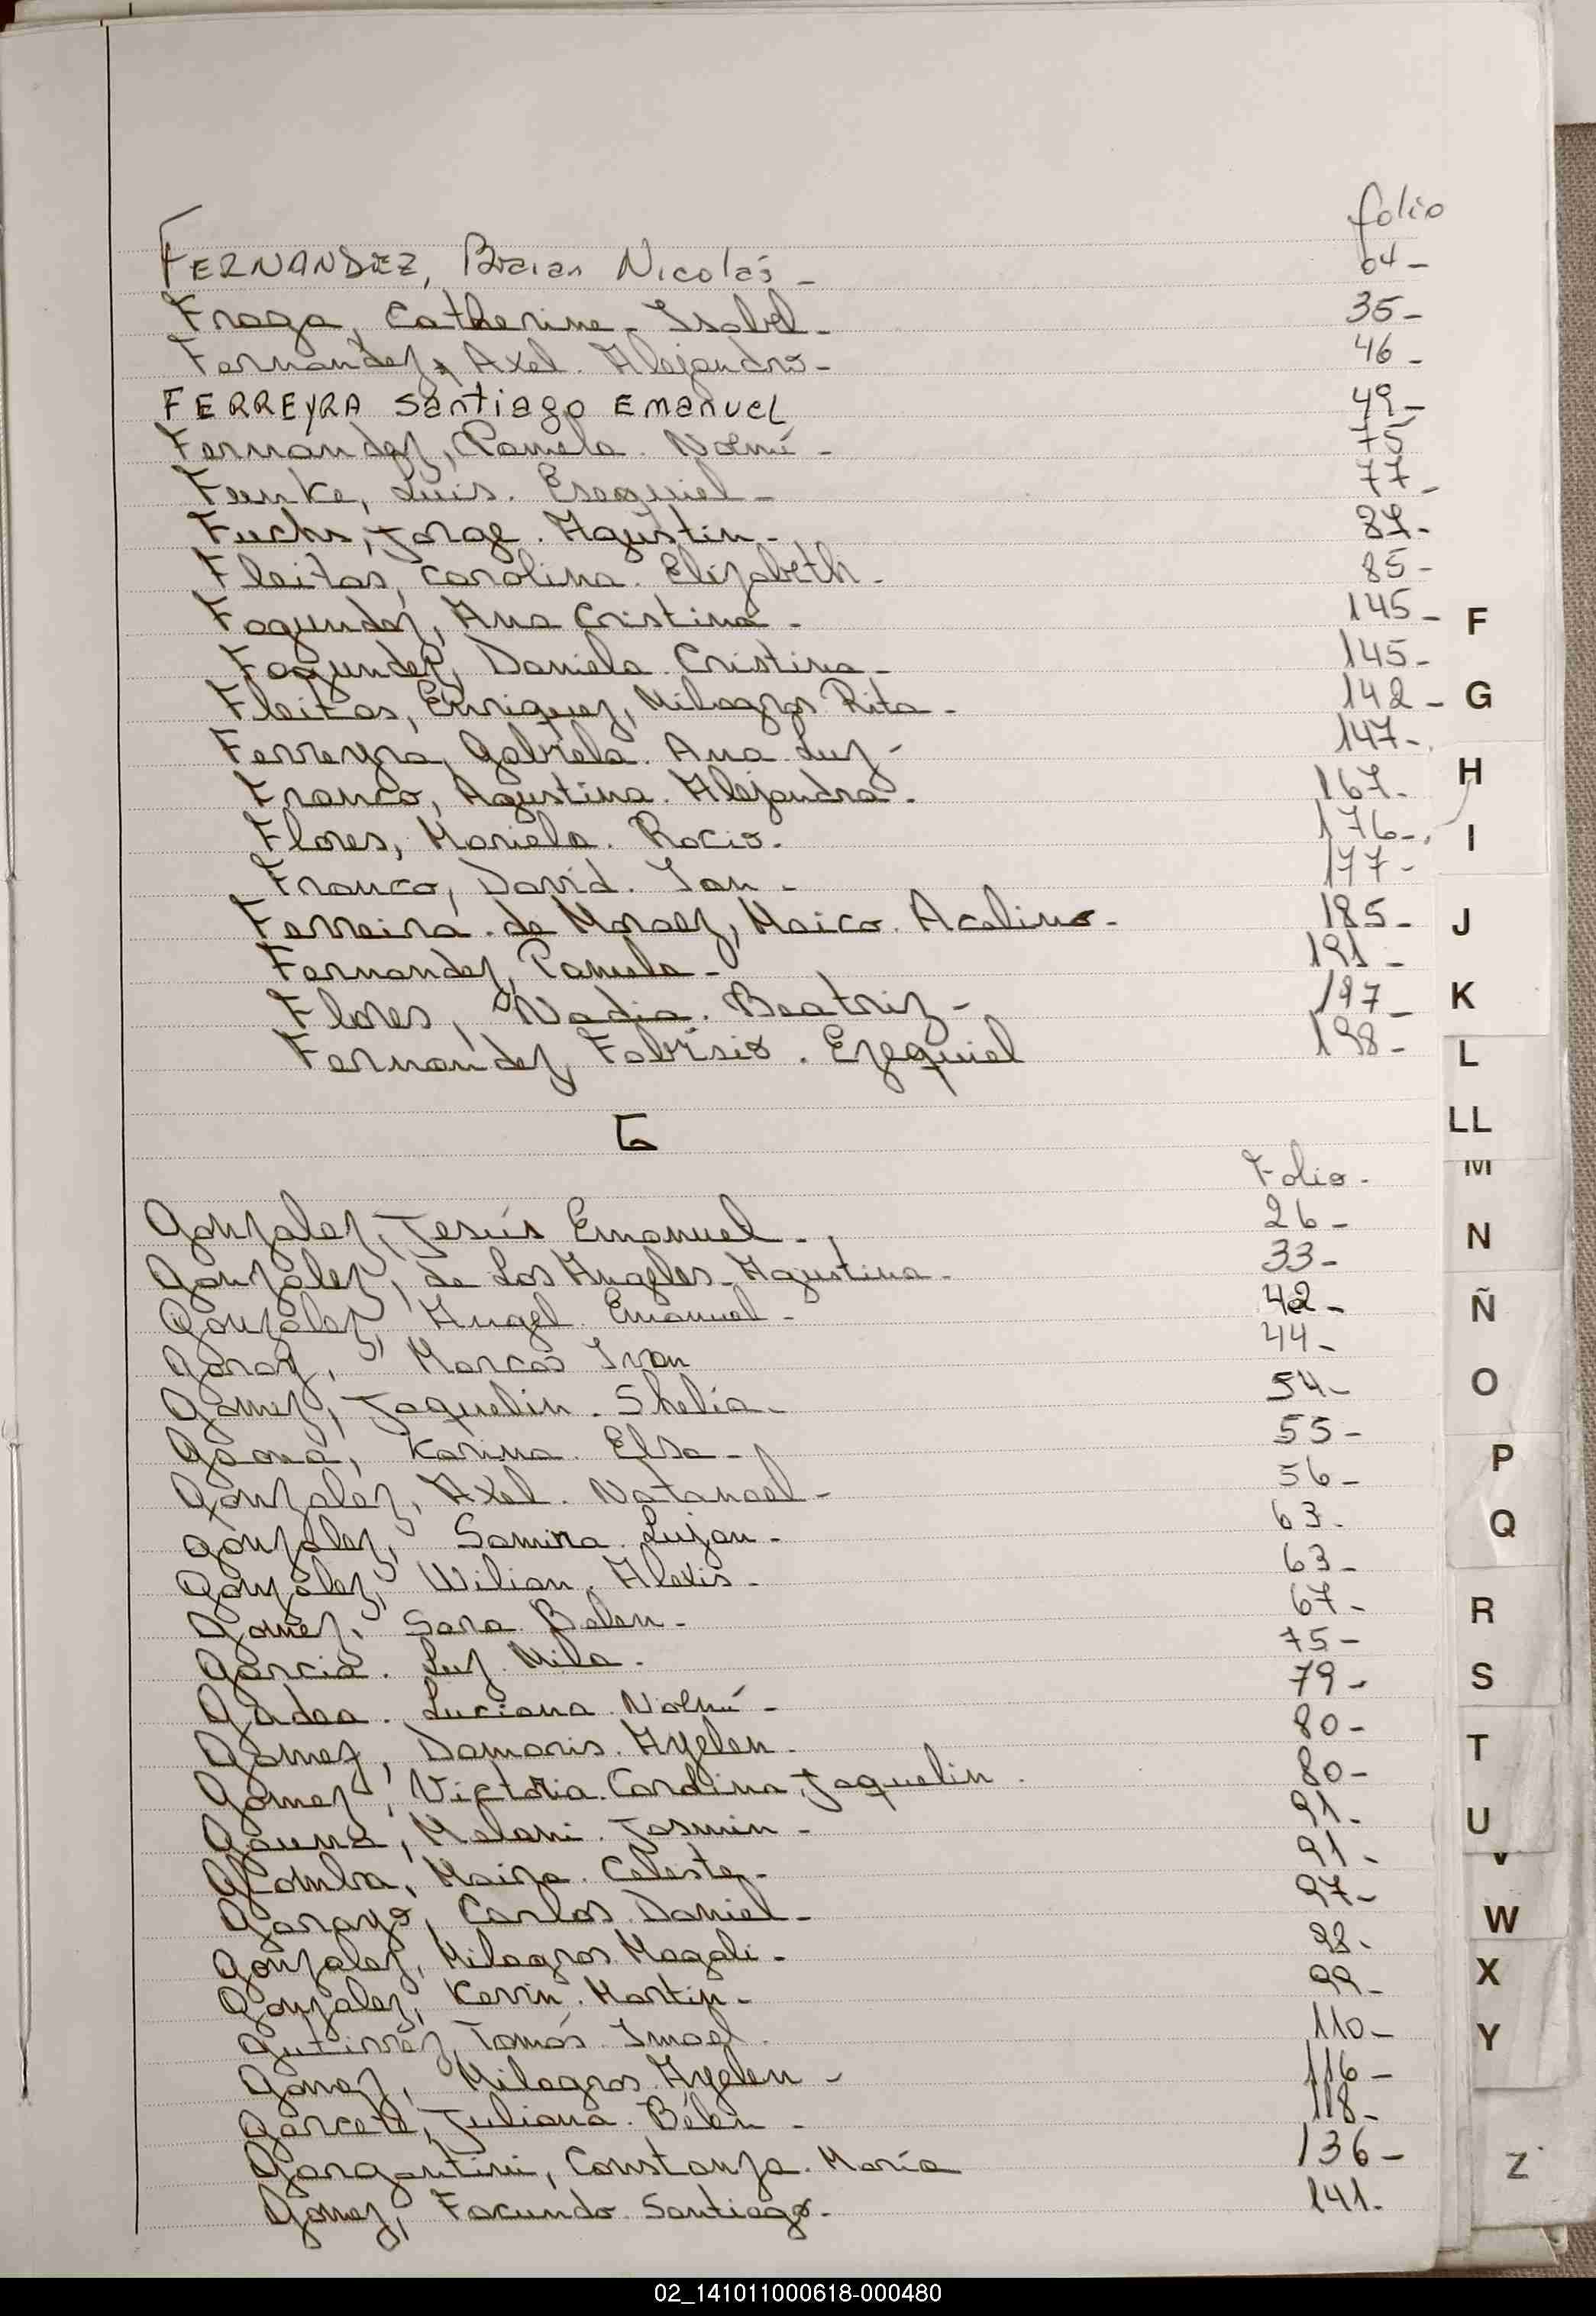 folio
FERNANDEZ, Braian Nicolás - 64 -
Fraga, Catherine - Isabel - 35 -
Fernandez, Axel. Alejandro - 46 -
FERREYRA Santiago Emanuel 49 -
Fernández, Pamela. Noemí - 75
Funke, Luis. Esequiel - 77 -
Fuchs, Jorge. Agustin - 87 -
Fleitas, Carolina. Elizabeth. 85 -
Fagundez, Ana Cristina - 145 -
Fagundez, Daniela Cristina - 145 -
Fleitas, Enriquez, Milagros Rita - 142 -
Ferreyra, Gabriela. Ana Luz - 147 -
Franco, Agustina. Alejandra. 167.
Flores, Mariela. Rocio. 176 -
Franco, David. Ian - 177 -
Ferreira. de Moraez, Maico. Acelino - 185 -
Fernandez, Pamela - 191 -
Flores, Nadia. Beatriz - 197 -
Fernández, Fabrisio. Ezequiel 198 -
G
Folio.
Gonzalez, Jesús Emanuel - 26 -
Gonzalez, de Los Angeles - Agustina. 33 -
Gonzalez, Angel Emanuel - 42 -
Garay, Marcos Ivan 44 -
Gomez, Jaquelin. Shelia - 54 -
Gaona, Karina. Elsa - 55 -
Gonzalez, Axel. Natanael - 56 -
Gonzalez, Samira Lujan - 63.
Gonzalez, Wilian. Alexis - 63 -
Gomez, Sara Belen - 67 -
Garcia. Luz Mila. 75 -
Gadea. Luciana Noemí - 79 -
Gomez, Damaris. Ayelen - 80 -
Gomez, Victoria. Carolina, Jaquelin. 80 -
Gauna, Melani. Jasmin - 91 -
Maira. Celeste - 91 -
Garayo, Carlos. Daniel - 97 -
Gonzalez, Milagros Magali - 98 -
Gonzalez, Kevin. Martin - 99 -
Gutierrez, Tomás. Imael. 110 -
Gomez, Milagros Ayelen - 116 -
Garcete, Juliana. Bélen - 118 -
Gargantini, Constanza. María 136 -
Gomez, Facundo Santiago - 141 -
F
G
H
I
J
K
L
LL
M
N
Ñ
O
P
Q
R
S
T
U
V
W
X
Y
Z
02_141011000618-000480